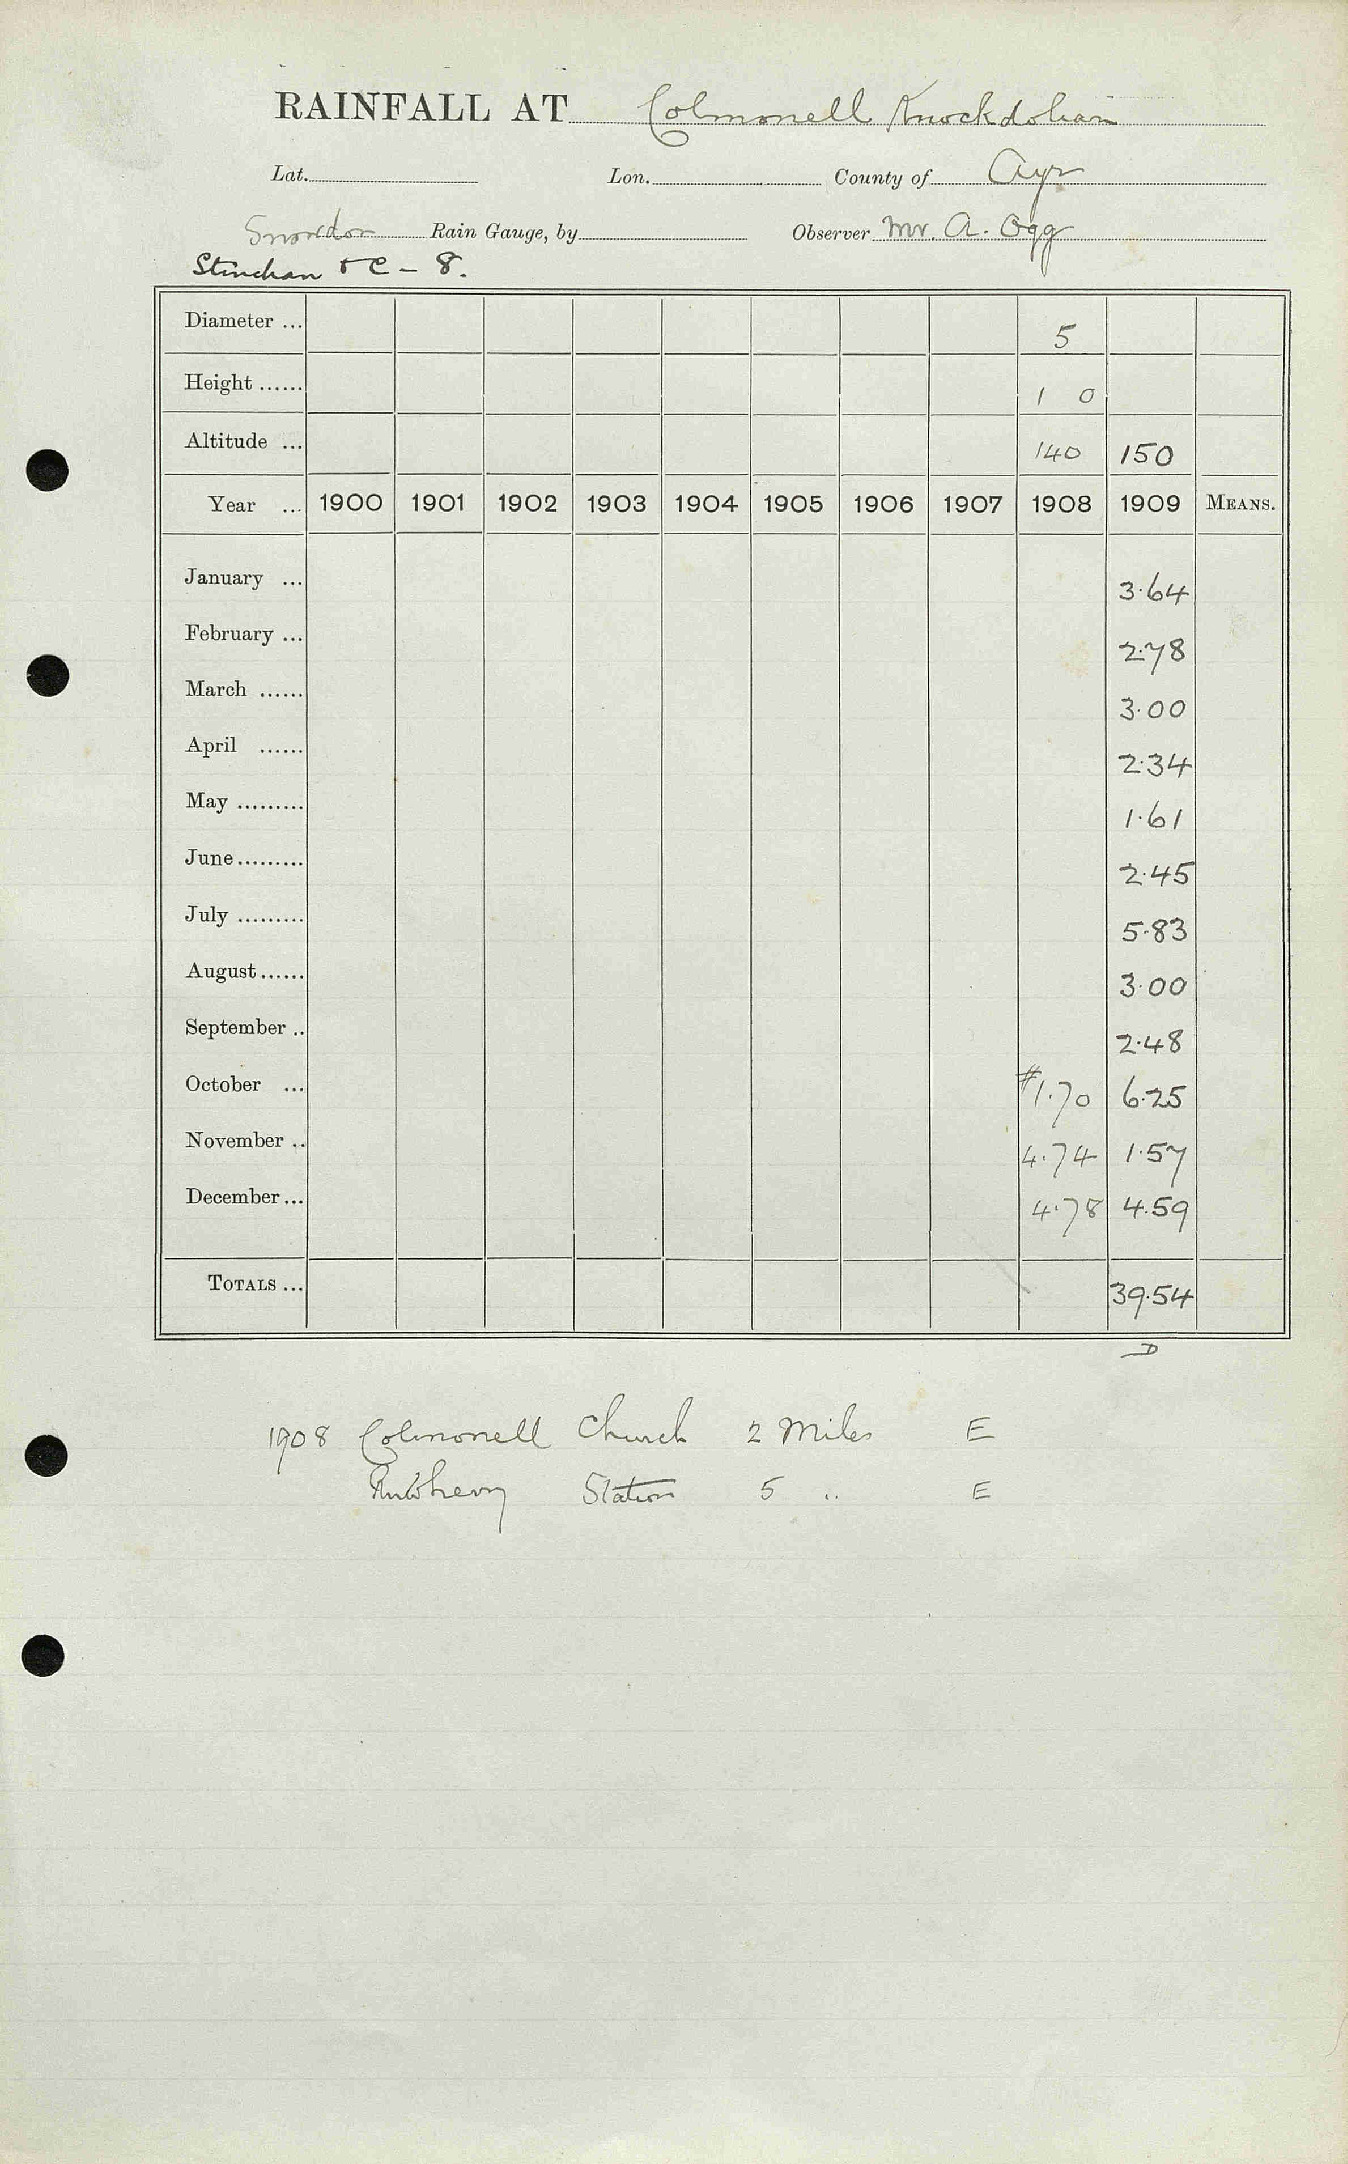 RAINFALL AT Colmonell Knockdolian
Lat. Lon. County of Ayr
Snowdon Rain Gauge, by Observer Mr. A. Ogg
Stinchan & C - 8.
Diameter ... 5
Height ...... 1 0
Altitude ... 140 150
Year ... 1900 1901 1902 1903 1904 1905 1906 1907 1908 1909 MEANS.
January ... 3.64
February ... 2.78
March ...... 3.00
April ...... 2.34
May ......... 1.61
June ......... 2.45
July ......... 5.83
August ...... 3.00
September .. 2.48
October ... #1.70 6.25
November .. 4.74 1.57
December ... 4.78 4.59
TOTALS ... 39.54
D
1908 Colmonell Church 2 Miles E
Station 5 " E